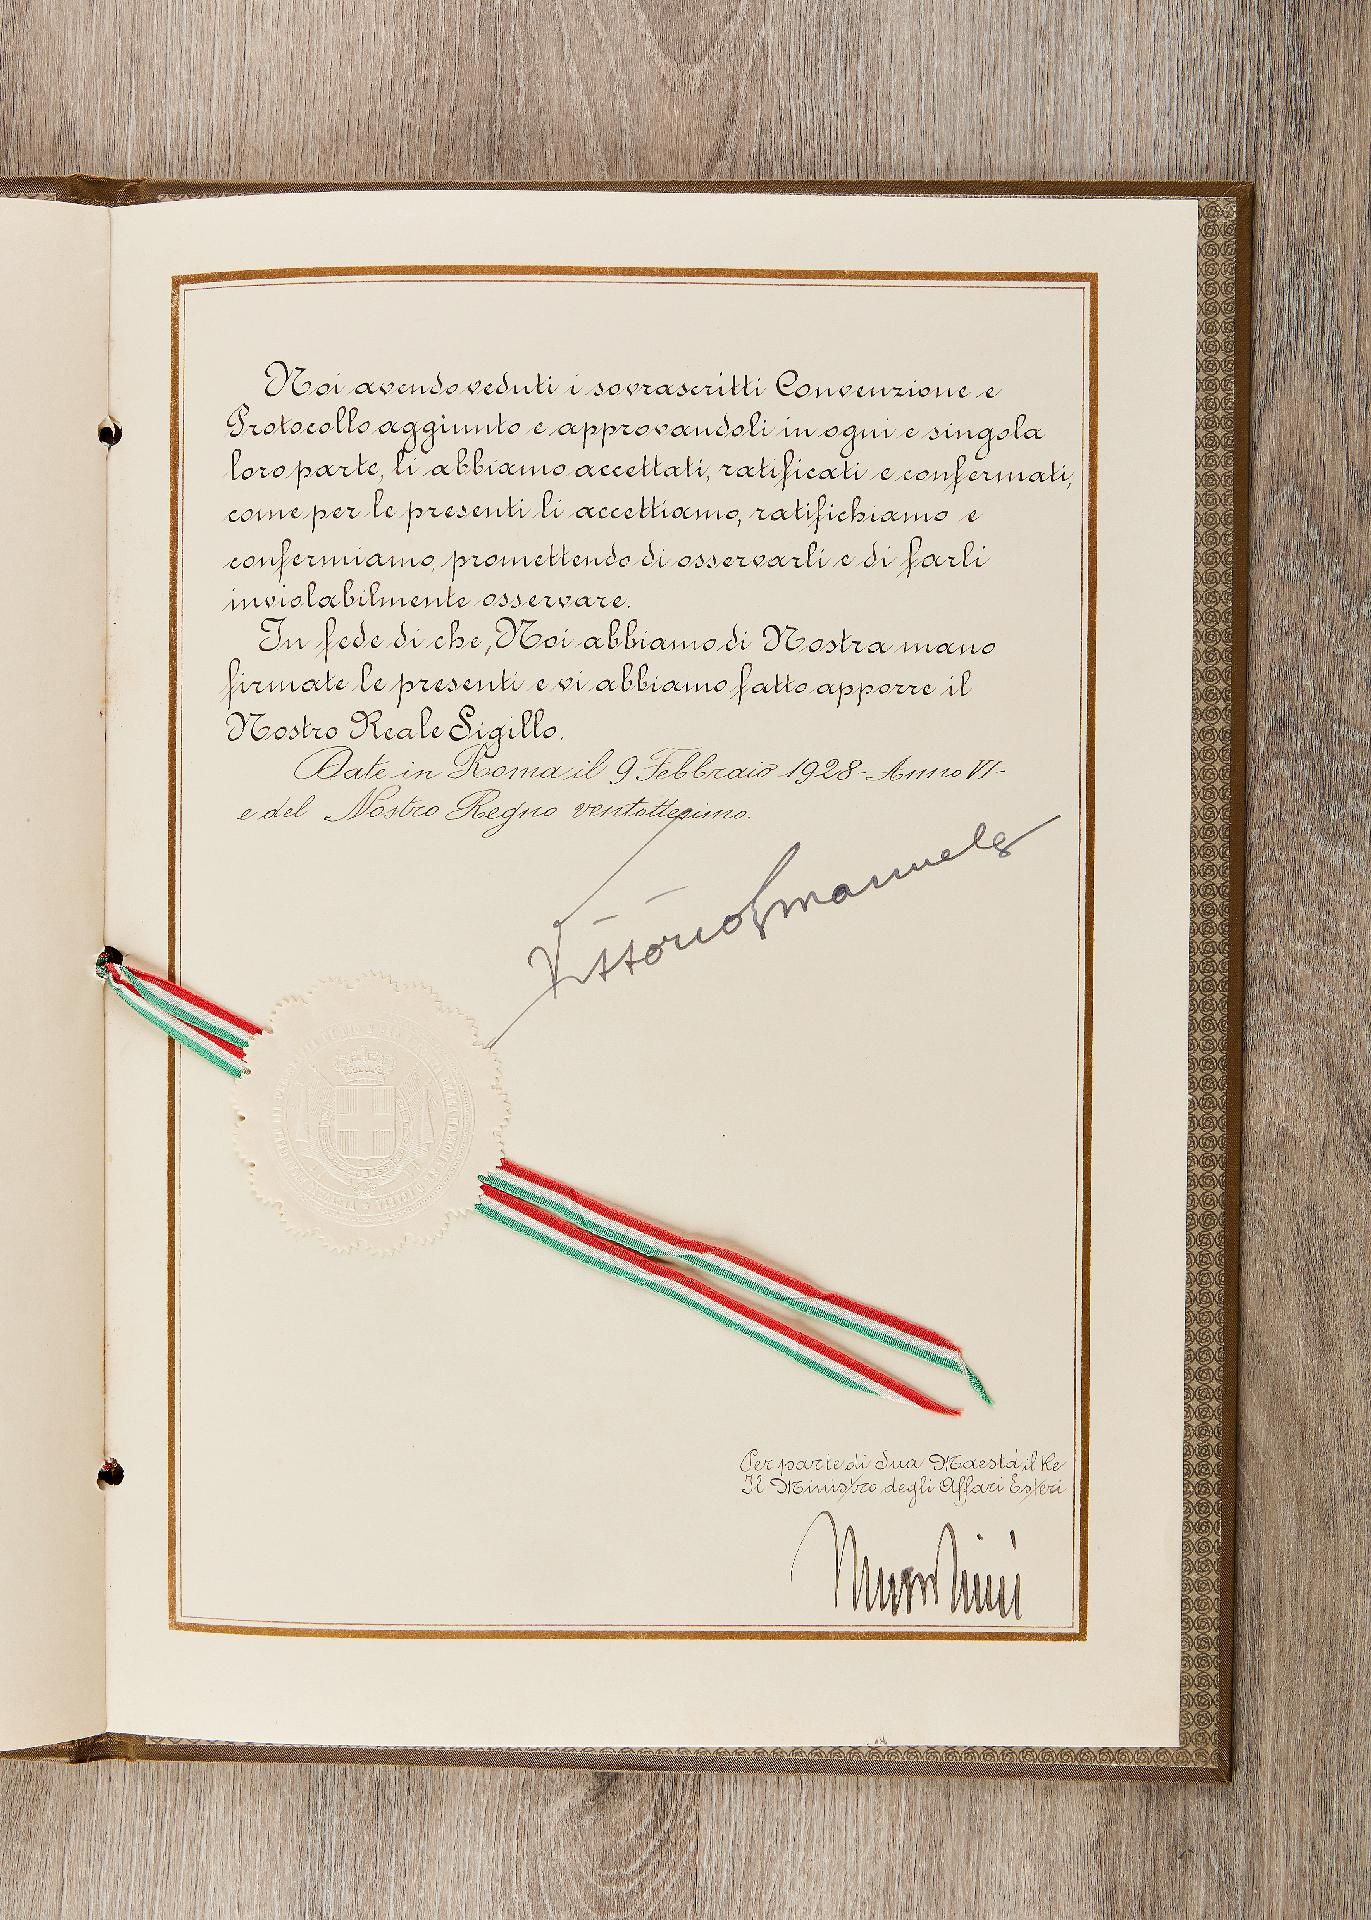 Noi avendo veduti i sovrascritti Convenzione e
Protocollo aggiunto e approvandoli in ogni e singola
loro parte, li abbiamo accettati, ratificati e confermati,
come per le presenti li accettiamo, ratifichiamo e
confermiamo, promettendo di osservarli e di farli
inviolabilmente osservare.
In fede di che, Noi abbiamo di Nostra mano
firmate le presenti e vi abbiamo fatto apporre il
Nostro Reale Sigillo.
Date in Roma il 9 Febbraio 1928 - Anno VI -
e del Nostro Regno ventottesimo.
Vittorio Emanuele
Per parte di Sua Maestá il Re
Il Ministro degli Affari Esteri
Mussolini